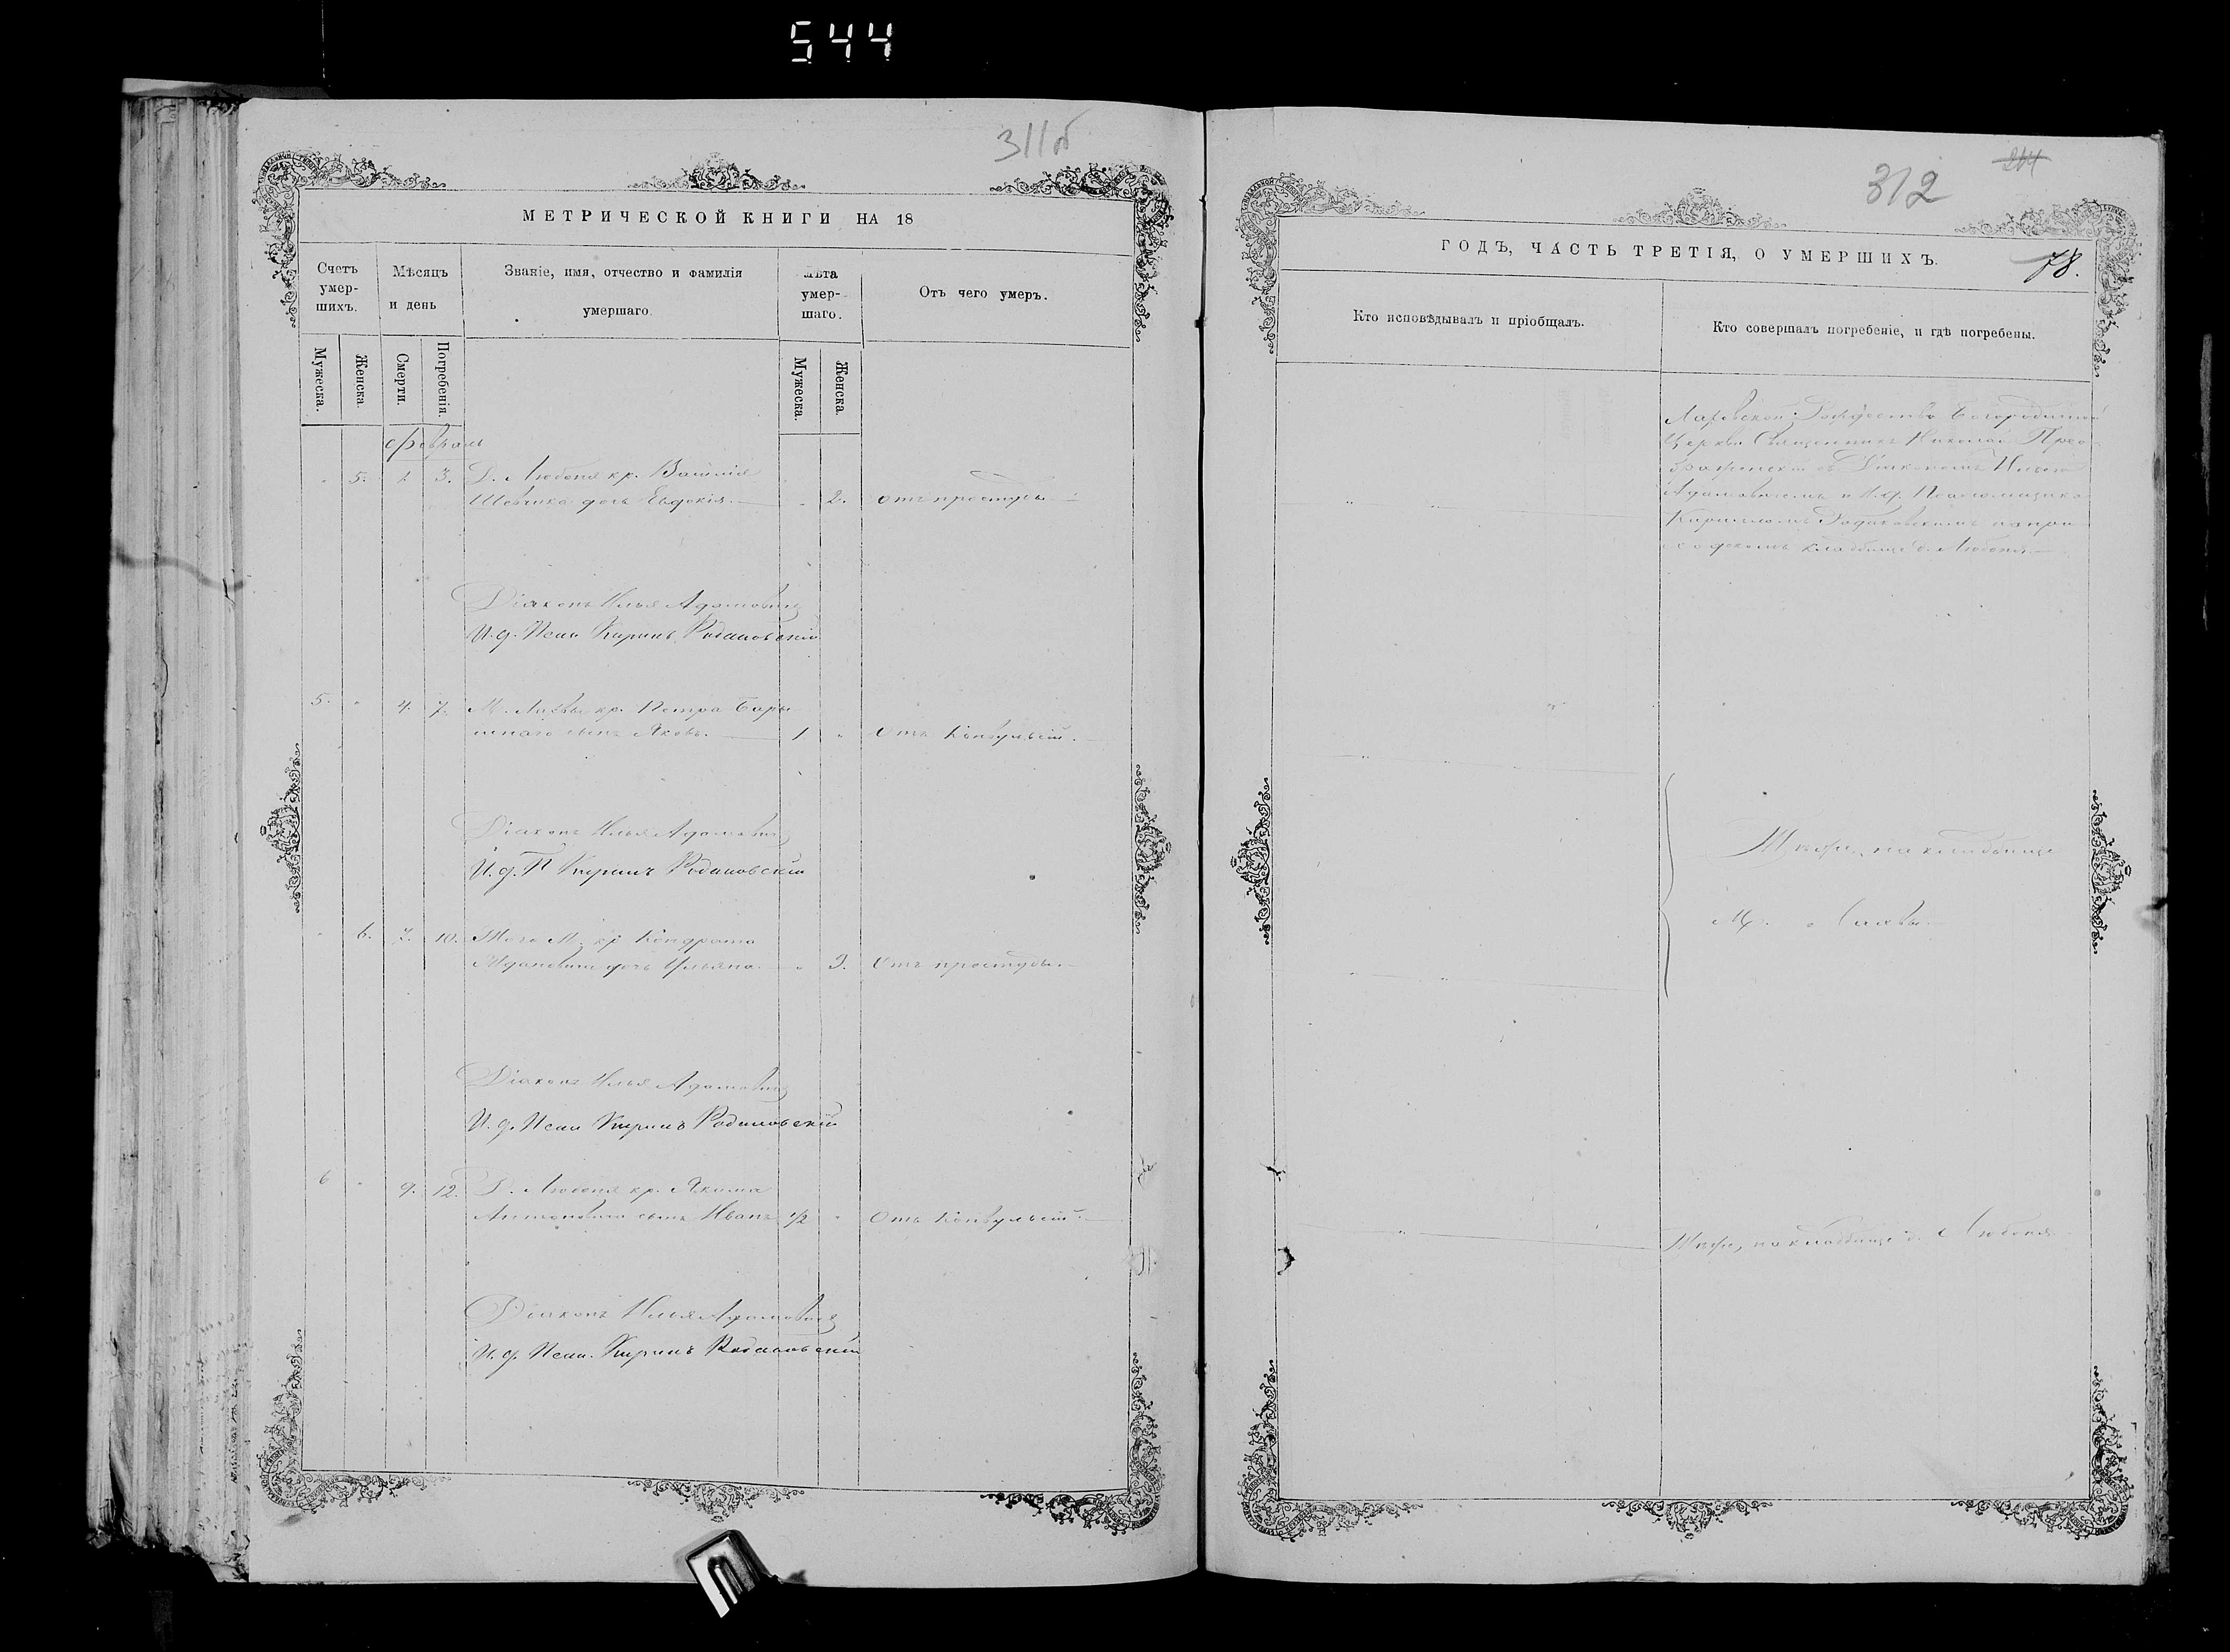 544
311б
МЕТРИЧЕСКОЙ КНИГИ НА 18
Счетъ умер-шихъ.
Мѣсяцъ и день
Званіе, имя, отчество и фамилія умершаго.
лѣта умер-шаго.
Отъ чего умеръ.
Мужеска.
Женска.
Смерти.
Погребенія.
Мужеска.
Женска.
Февраль
5. 3. Д. Любоня кр.
Шевчика дочь Евдокія. 2. отъ простуды
Діаконъ Илья Адамовичъ
И. д. Псал Кирилъ Родаковскій
5. 4. 7. М. Лахвы кр. Петра
сынъ Яковъ. 1 Отъ Конвульсій.
Діаконъ Илья Адамовичъ
И. д. П Кирилъ Родаковскій
6. 7. 10. Того М. кр Кондрата
дочь Ульяна. 3. Отъ простуды.
Діаконъ Илья Адамовичъ
И. д. Псал Кирилъ Родаковскій
6 9. 12. Д. Любоня кр. Якима
сынъ Иванъ 1/2 Отъ Конвульсій.
Діаконъ Илья Адамовичъ
И. д. Псал. Кирилъ Родаковскій
312
214
ГОДЪ, ЧАСТЬ ТРЕТІЯ, О УМЕРШИХЪ.
78.
Кто исповѣдывалъ и пріобщалъ.
Кто совершалъ погребеніе, и гдѣ погребены.
Лахвской Рождество Богородичной
Церкви Священникъ Николай Прео
браженскій съ Діакономъ Ильею
Адамовичемъ и И. д. Псаломщика
Кириломъ Родаковскимъ на при
ходскомъ кладбищѣ д. Любоня.
Тѣже, на кладбищѣ
М. Лахвы
Тѣже, на кладбищѣ д. Любоня